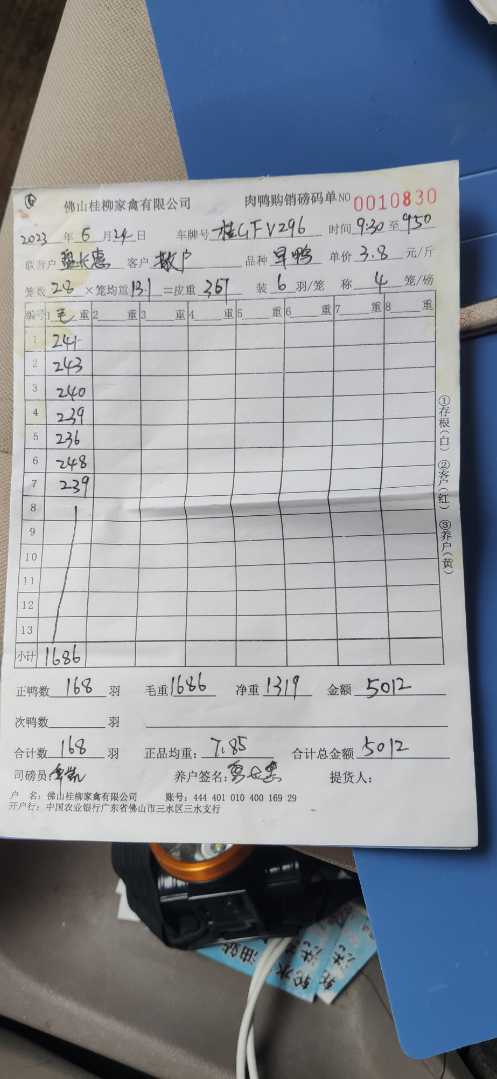 佛山桂柳家禽有限公司 肉鸭购销磅码单 NO 0010830
2023 年 6 月 24 日 车牌号 桂GFV296 时间 9:30 至 950
客户 散户 品种 旱鸭 单价 3.8 元/斤
笼数 28 ×笼均重 13.1 =皮重 367 装 6 羽/笼 称 4 笼/磅
编号 1 毛 重 2 重 3 重 4 重 5 重 6 重 7 重 8 重
1 241
2 243
3 240
4 239
5 236
6 248
7 239
8
9
10
11
12
13
小计 1686
①存根(白) ②客户(红) ③养户(黄)
正鸭数 168 羽 毛重 1686 净重 1319 金额 5012
次鸭数 羽
合计数 168 羽 正品均重: 7.85 合计总金额 5012
司磅员: 养户签名: 提货人:
户 名: 佛山桂柳家禽有限公司 账号: 444 401 010 400 169 29
开户行: 中国农业银行广东省佛山市三水区三水支行
油站
轮水
洗